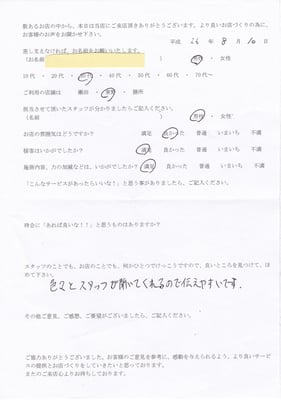 数あるお店の中から、本日は当店にご来店頂きありがとうございます。より良いお店づくりの為に、
お客様のお声をお聞かせ下さい。
平成 26 年 8 月 10 日
差し支えなければ、お名前をお願いいたします。
(お名前 ) 男性 ・ 女性
10代 ・ 20代 ・ 30代 ・ 40代 ・ 50代 ・ 60代 ・ 70代〜
ご利用の店舗は 瀬田 ・ 草津 ・ 膳所
担当させて頂いたスタッフが分かりましたらご記入ください。
(名前 ) 男性 ・ 女性
お店の雰囲気はどうですか? 満足 良かった 普通 いまいち 不満
接客はいかがでしたか? 満足 良かった 普通 いまいち 不満
施術内容、力の加減などは、いかがでしたか? 満足 良かった 普通 いまいち 不満
「こんなサービスがあったらいいな!」と思う事がありましたら、ご記入ください。
待合に「あれば良いな!!」と思うものはありますか?
スタッフのことでも、お店のことでも、何かひとつでけっこうですので、良いところを見つけて、ほ
めて下さい。
色々とスタッフが聞いてくれるので伝えやすいです。
その他ご意見、ご感想、ご要望がございましたら、ご記入ください。
ご協力ありがとうございました。お客様のご意見を参考に、感動を与えられるよう、より良いサービ
スの提供とお店づくりをしていきたいと思っております。
またのご来店心よりお待ちしております。